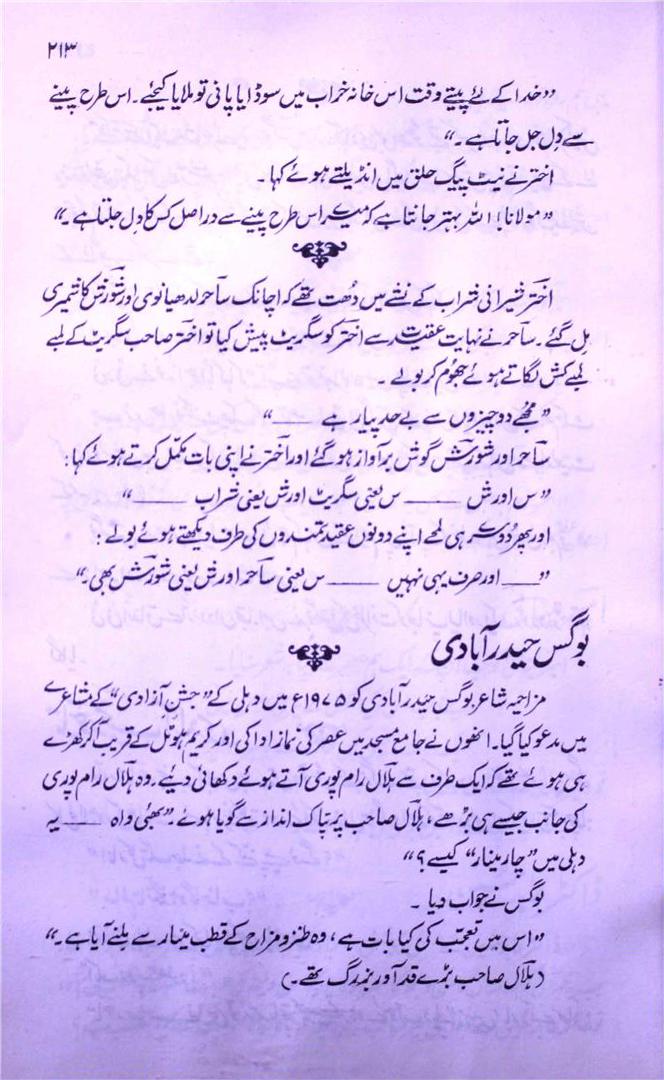 ۲۱۳
”خدا کے لئے پیتے وقت اس خانہ خراب میں سوڈا یا پانی تو ملایا کیجئے۔ اس طرح پینے
سے دل جل جاتا ہے۔“
اختر نے نیٹ پیگ حلق میں انڈیلتے ہوئے کہا۔
”مولانا! اللہ بہتر جانتا ہے کہ میرے اس طرح پینے سے دراصل کس کا دل جلتا ہے۔“
اختر شیرانی شراب کے نشے میں دُھت تھے کہ اچانک ساحر لدھیانوی اور شورش کاشمیری
مل گئے۔ ساحر نے نہایت عقیدت سے اختر کو سگریٹ پیش کیا تو اختر صاحب سگریٹ کے لمبے
لمبے کش لگاتے ہوئے جھوم کر بولے۔
”مجھے دو چیزوں سے بے حد پیار ہے ـــــــ“
ساحر اور شورش گوش بر آواز ہو گئے اور اختر نے اپنی بات مکمل کرتے ہوئے کہا:
”س اور ش ـــــــ س یعنی سگریٹ اور ش یعنی شراب ـــــــ“
اور پھر دوسرے ہی لمحے اپنے دونوں عقیدتمندوں کی طرف دیکھتے ہوئے بولے:
”ـــــ اور صرف یہی نہیں ـــــــ س یعنی ساحر اور ش یعنی شورش بھی۔“
بوگس حیدرآبادی
مزاحیہ شاعر بوگس حیدرآبادی کو ۱۹۷۵ء میں دہلی کے ”جشنِ آزادی“ کے مشاعرے
میں مدعو کیا گیا۔ انھوں نے جامع مسجد میں عصر کی نماز ادا کی اور کریم ہوٹل کے قریب آ کر کھڑے
ہی ہوئے تھے کہ ایک طرف سے ہلال رام پوری آتے ہوئے دکھائی دیئے۔ وہ ہلال رام پوری
کی جانب جیسے ہی بڑھے، ہلال صاحب پرتپاک انداز سے گویا ہوئے۔ ”بھئی واہ ـــــ یہ
دہلی میں ”چار مینار“ کیسے؟“
بوگس نے جواب دیا۔
”اس میں تعجب کی کیا بات ہے، وہ طنز و مزاح کے قطب مینار سے ملنے آیا ہے۔“
(ہلال صاحب بڑے قد آور بزرگ تھے۔)